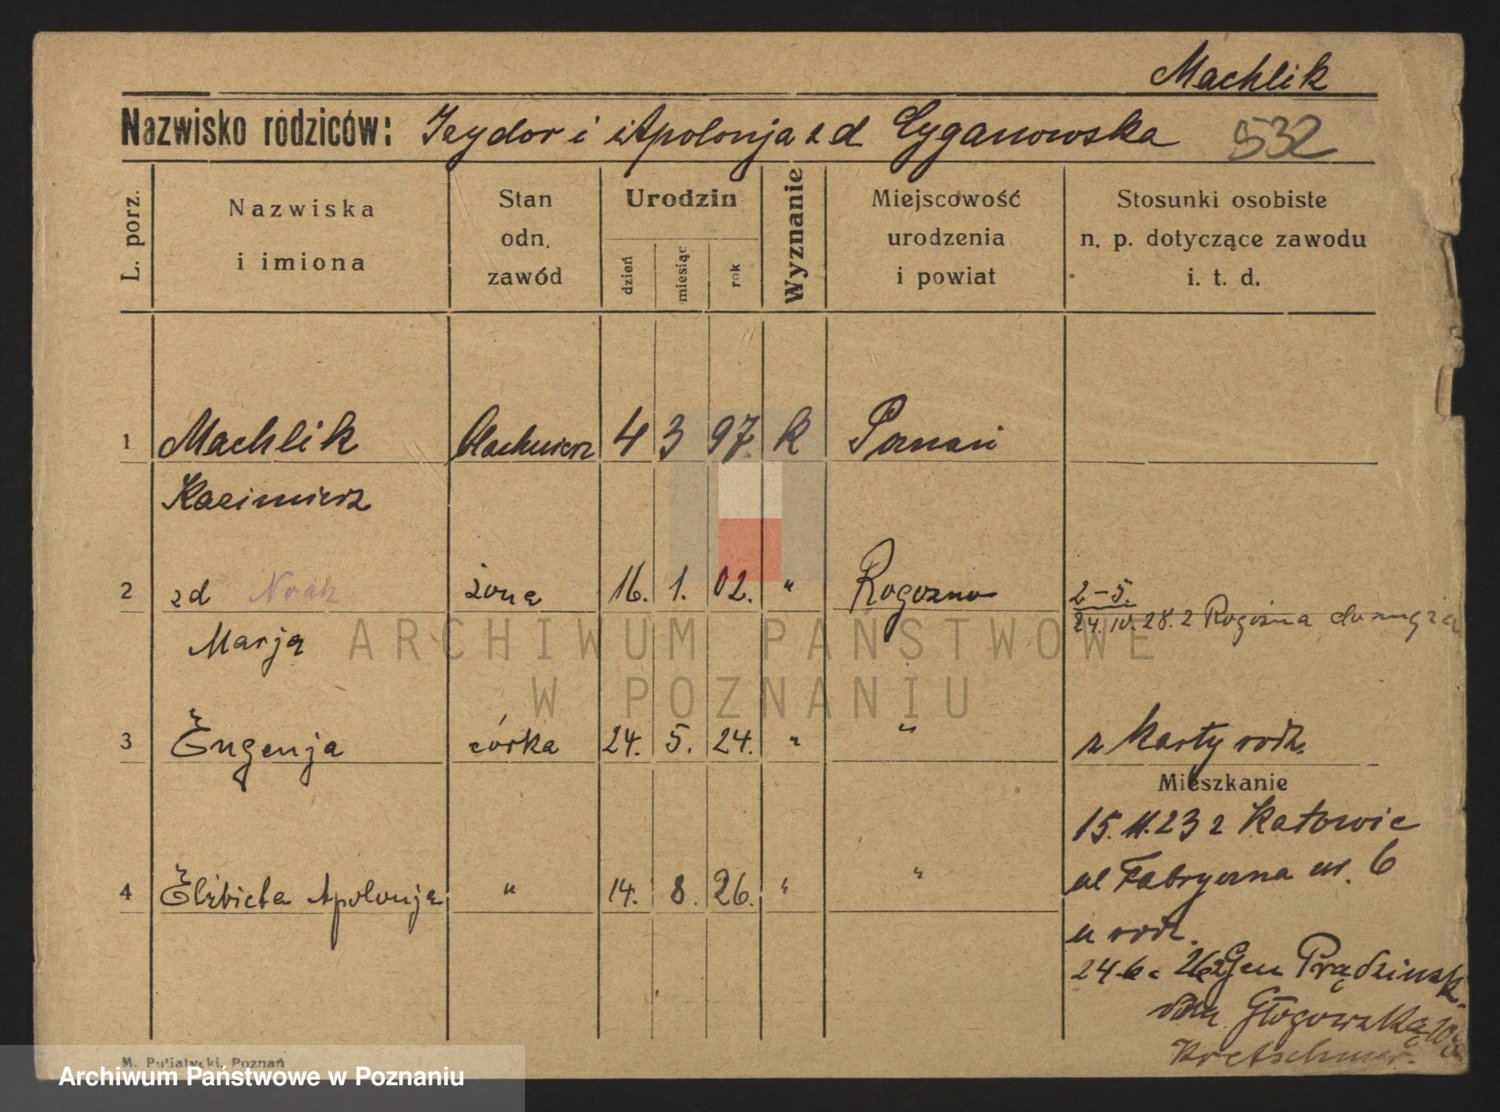 Machlik
Nazwisko rodziców: Izydor i Apolonja z d Cyganowska 532
L. porz.
Nazwiska
i imiona
Stan
odn.
zawód
Urodzin
dzień
miesiąc
rok
Wyznanie
Miejscowość
urodzenia
i powiat
Stosunki osobiste
n. p. dotyczące zawodu
i. t. d.
1 Machlik 4 3 97. k Poznań
Kazimierz
2 zd Nowak żona 16. 1. 02. " Rogozno 2-5.
Marja 24. IV. 28. z Rogoźna do męża
3 Eugenja córka 24. 5. 24. " " z karty rodz.
Mieszkanie
15. 11. 23 z Katowic
ul Fabryczna nr. 6
4 Elżbieta Apolonja " 14. 8. 26. " "
u rodz.
24 6 Gen Prądzińsk
Głogowska
Kretschmer.
ARCHIWUM PAŃSTWOWE
W POZNANIU
M. Putiatycki, Poznań
Archiwum Państwowe w Poznaniu